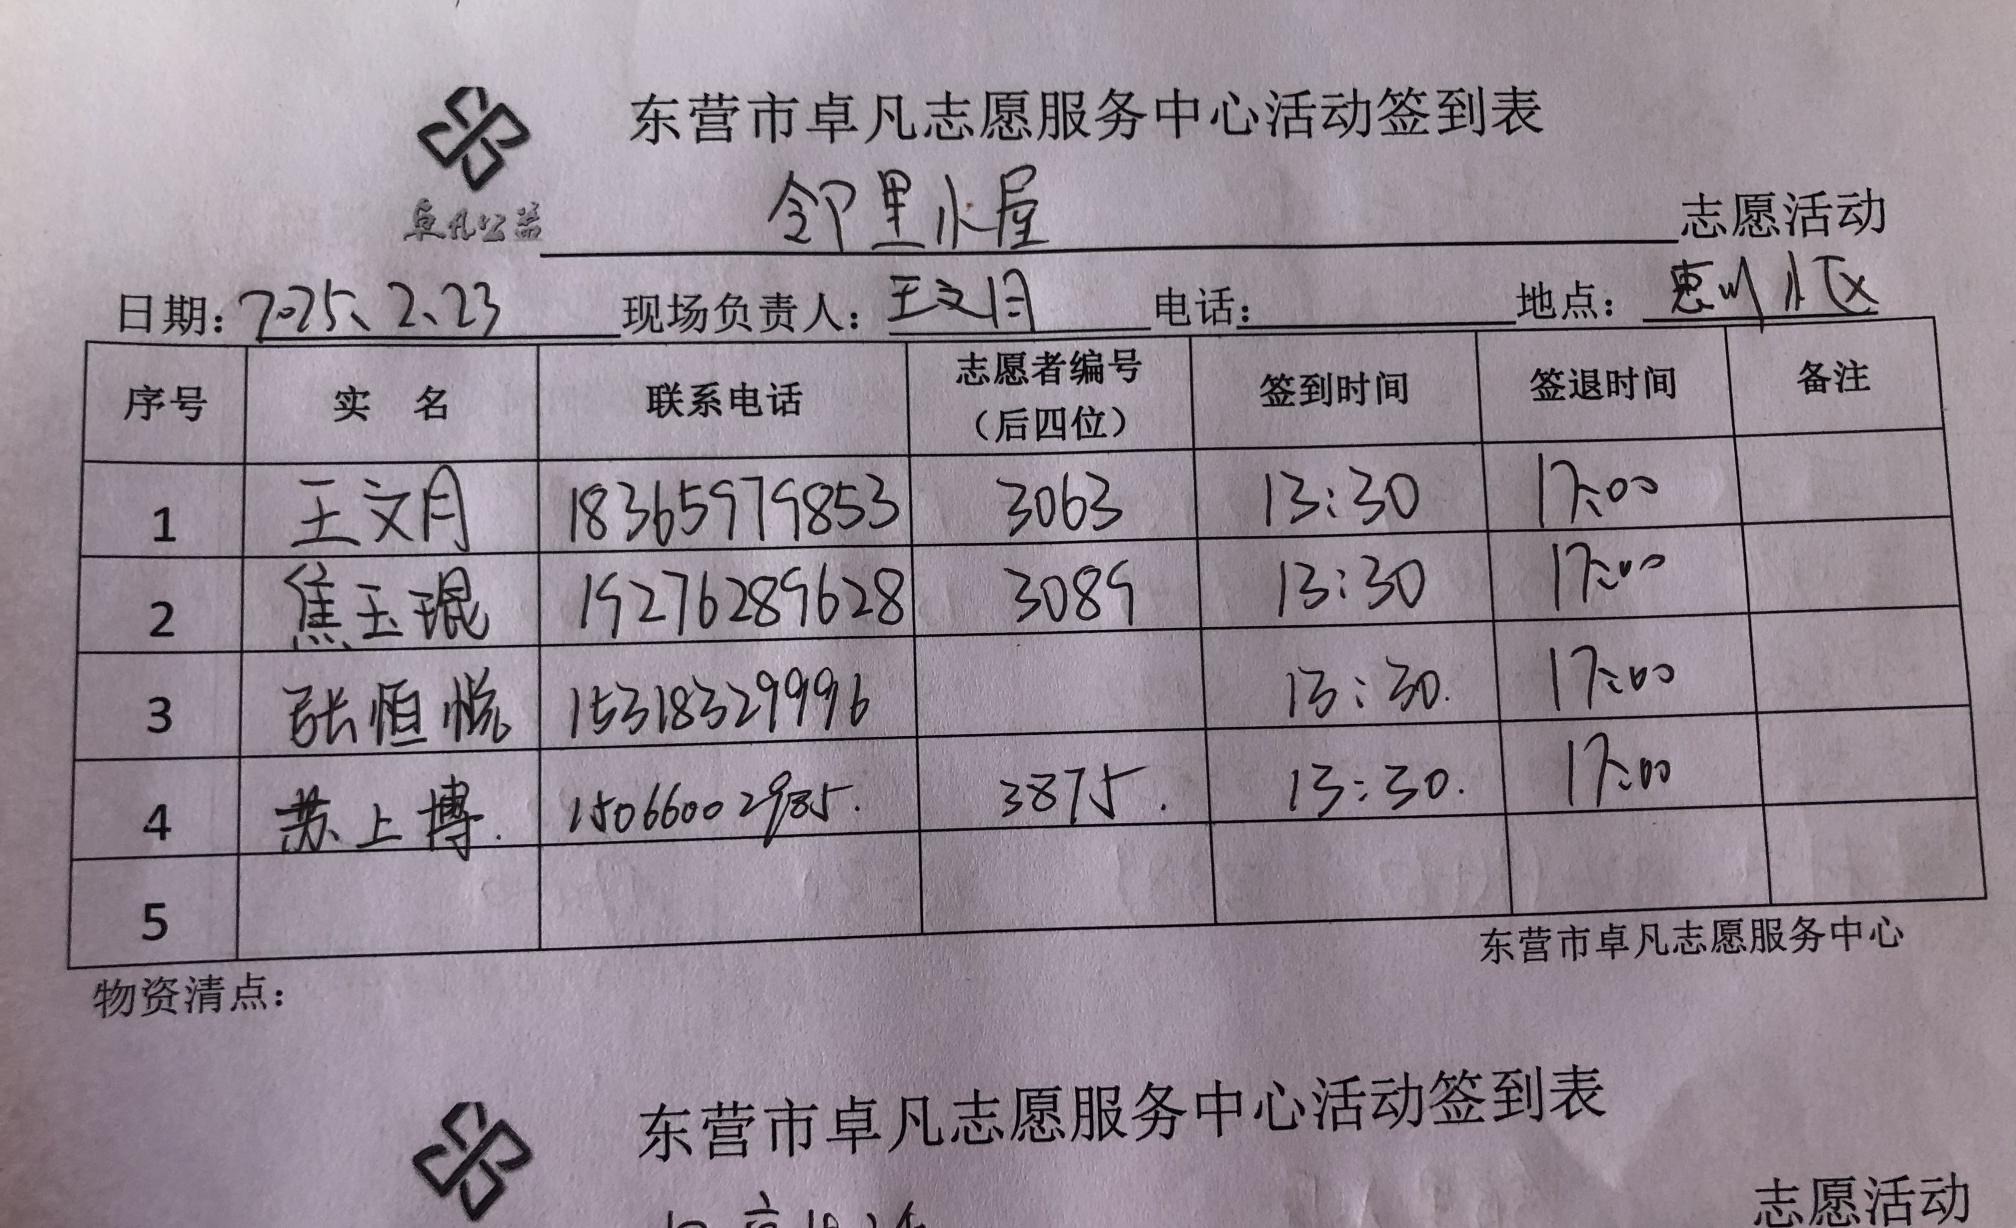 东营市卓凡志愿服务中心活动签到表
卓凡公益
邻里小屋 志愿活动
日期：2025、2、23 现场负责人：王文月 电话： 地点：惠州小区
序号 实 名 联系电话 志愿者编号（后四位） 签到时间 签退时间 备注
1 王文月 18365979853 3063 13:30 17:00
2 焦玉琨 19276289628 3089 13:30 17:00
3 张恒悦 15318329996 13:30. 17:00
4 苏上博. 15066002985. 3875. 13:30. 17:00
5
东营市卓凡志愿服务中心
物资清点：
东营市卓凡志愿服务中心活动签到表
志愿活动